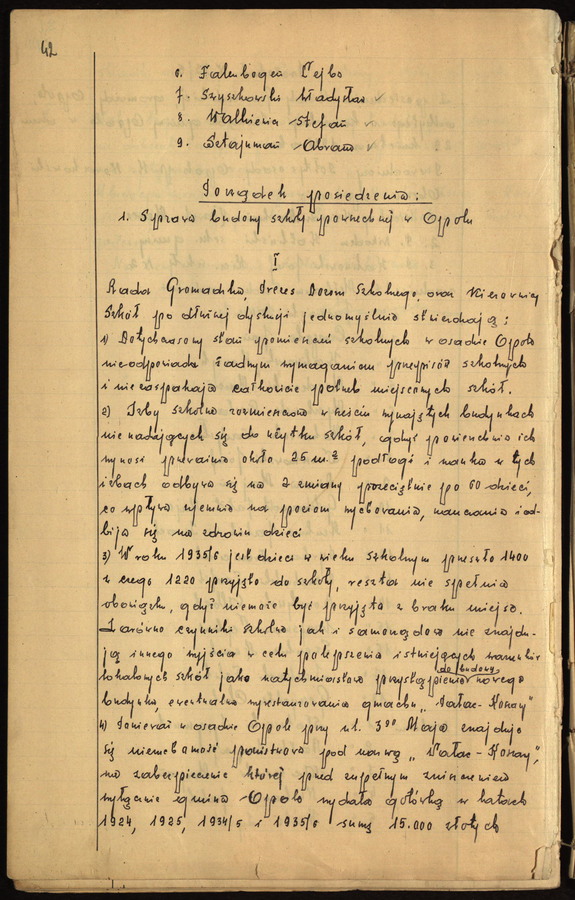 42
6. Falenbogen Lejbo
7. Szyszkowski Władysław v
8. Walkiewicz Stefan v
9. Sztajnman Abram v
Porządek posiedzenia:
1. Sprawa budowy szkoły powszechnej w Opolu
I
Rada Gromadzka, Prezes Dozoru Szkolnego, oraz Kierownicy
Szkół po dłuższej dyskusji jednomyślnie stwierdzają:
1) Dotychczasowy stan pomieszczeń szkolnych w osadzie Opole
nieodpowiada żadnym wymaganiom przepisów szkolnych
i niezaspakaja całkowicie potrzeb miejscowych szkół.
2) Izby szkolne rozmieszczone w sześciu wynajętych budynkach
nie nadających się do użytku szkół, gdyż powierzchnia ich
wynosi przeważnie około 25 m.² podłogi i nauka w tych
izbach odbywa się na 2 zmiany przeciętnie po 60 dzieci,
co wpływa ujemnie na poziom wychowania, nauczania i od-
bija się na zdrowiu dzieci
3) W roku 1935/6 jest dzieci w wieku szkolnym przeszło 1400
z czego 1220 przyjęto do szkoły, reszta nie spełnia
obowiązku, gdyż niemoże być przyjęta z braku miejsca.
Zarówno czynniki szkolne jak i samorządowe nie znajdu-
ją innego wyjścia w celu polepszenia istniejących warunków
lokalowych szkół jako natychmiastowe przystąpienie do budowy nowego
budynku, ewentualnie wyrestaurowania gmachu "Pałac-Konay"
4) Ponieważ w osadzie Opole przy ul. 3go Maja znajduje
się nieruchomość państwowa pod nazwą "Pałac-Konay",
na zabezpieczenie której przed zupełnym zniszczeniem
wyłącznie gmina Opole wydała gotówką w latach
1924, 1925, 1934/5 i 1935/6 sumę 15.000 złotych